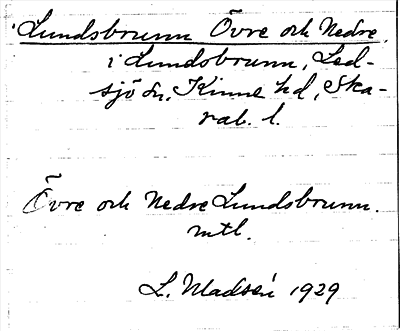 Lundsbrunn Övre och Nedre.
i Lundsbrunn, Led-
sjö sn, Kinne hd, Ska-
rab. l.
Övre och Nedre Lundsbrunn.
mtl.
L. Madsén 1929